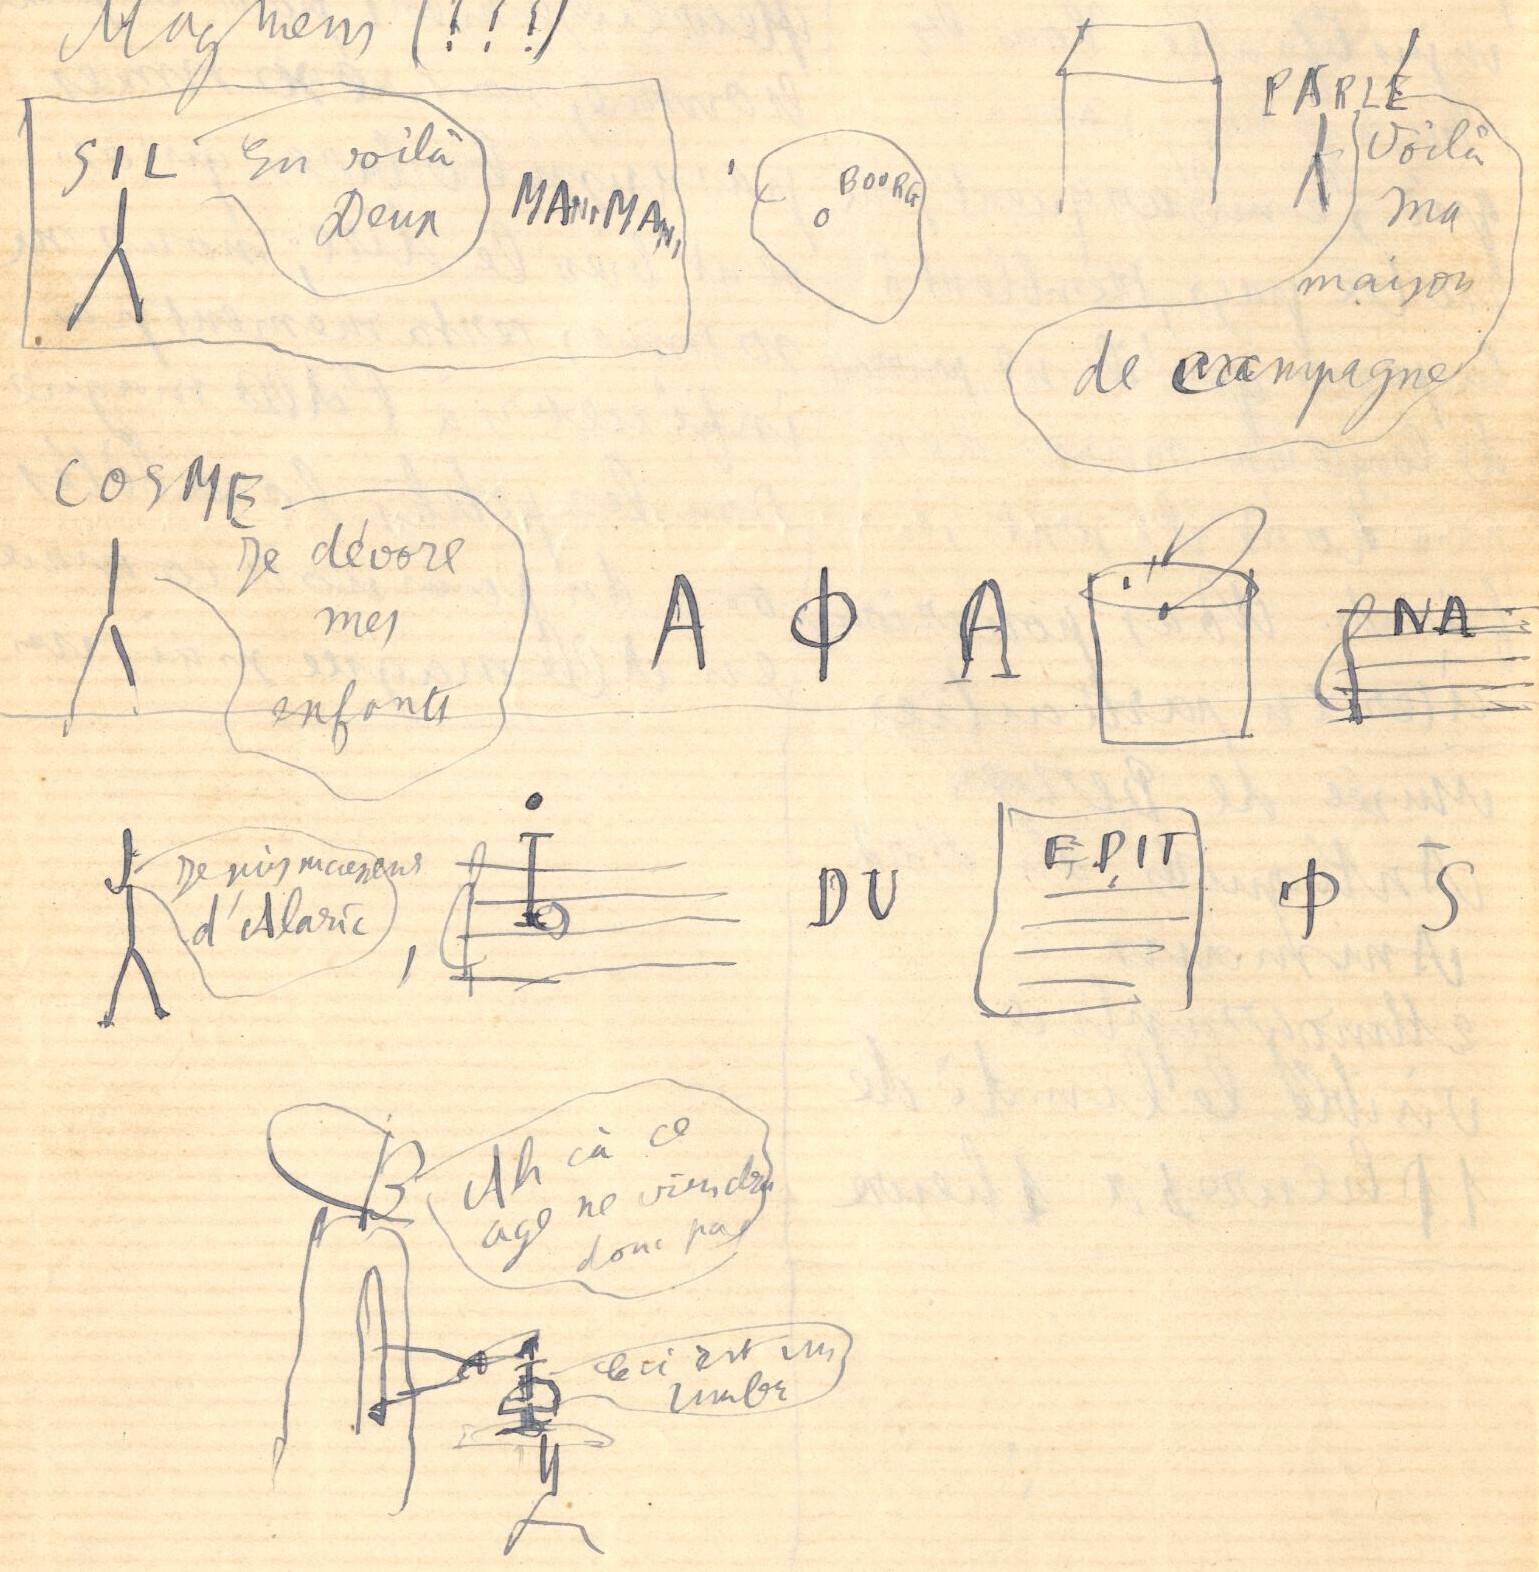 Maghens (!!!)
SIL
En voilà
Deux
MAMMAM,
BOURG
PARLE
Voilà
ma
maison
de campagne
COSME
Je dévore
mes
enfants
A Φ A
NA
Je suis
d'Alaric
,
I
DU
EPIT
Φ S
Ah çà ce
age ne viendra
donc pas
Ceci est un